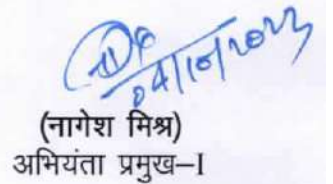 04/10/2023
(नागेश मिश्र)
अभियंता प्रमुख–I